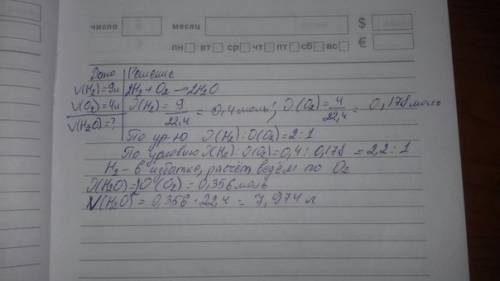 число месяц $
пн вт ср чт пт сб вс €
Дано Решение
V(H₂)=9л 2H₂+O₂→2H₂O
V(O₂)=4л ϑ(H₂)=9/22,4=0,4моль; ϑ(O₂)=4/22,4=0,178моль
V(H₂O)=?
По ур-ю ϑ(H₂):ϑ(O₂)=2:1
По условию ϑ(H₂):ϑ(O₂)=0,4:0,178=2,2:1
H₂-в избытке, расчёт ведём по O₂
ϑ(H₂O)= (O₂)=0,356моль
V(H₂O)=0,356·22,4=7,974л